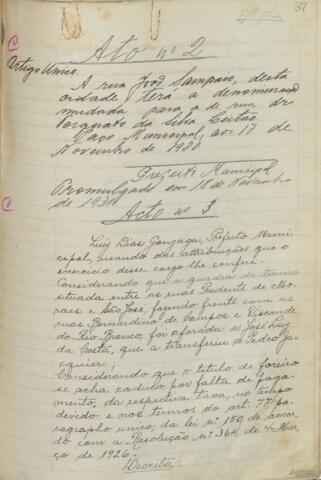 37
Ato nº 2
Artigo Unico.
A rua José Sampaio, desta
cidade, terá a denominação
mudada para a de rua dr
Torquato da Silva Leitão.
Paço Municipal, aos 17 de
Novembro de 1930.
Prefeito Municipal
Promulgado em 18 de Novembro
de 1930
Acto nº 3
Luiz Dias Gonzaga, Prefeito Muni-
cipal, usando das attribuições que o
exercicio desse cargo lhe confere.
Considerando que a quadra de terreno
situada entre as ruas Prudente de Mo-
raes e São José, fazendo frente com as
ruas Bernardino de Campos e Visconde
do Rio Branco, foi aforada a José Luiz
da Costa, que a transferiu a Pedro Ja-
quier;
Considerando que o titulo de foreiro
se acha caduco, por falta de paga-
mento, da respectiva taxa, no tempo
devido e nos termos do art. 77, pa-
ragrapho unico, da lei nº 150, de accor-
do com a Resolução nº 364, de 4 Mar-
ço de 1926.
Decreta: